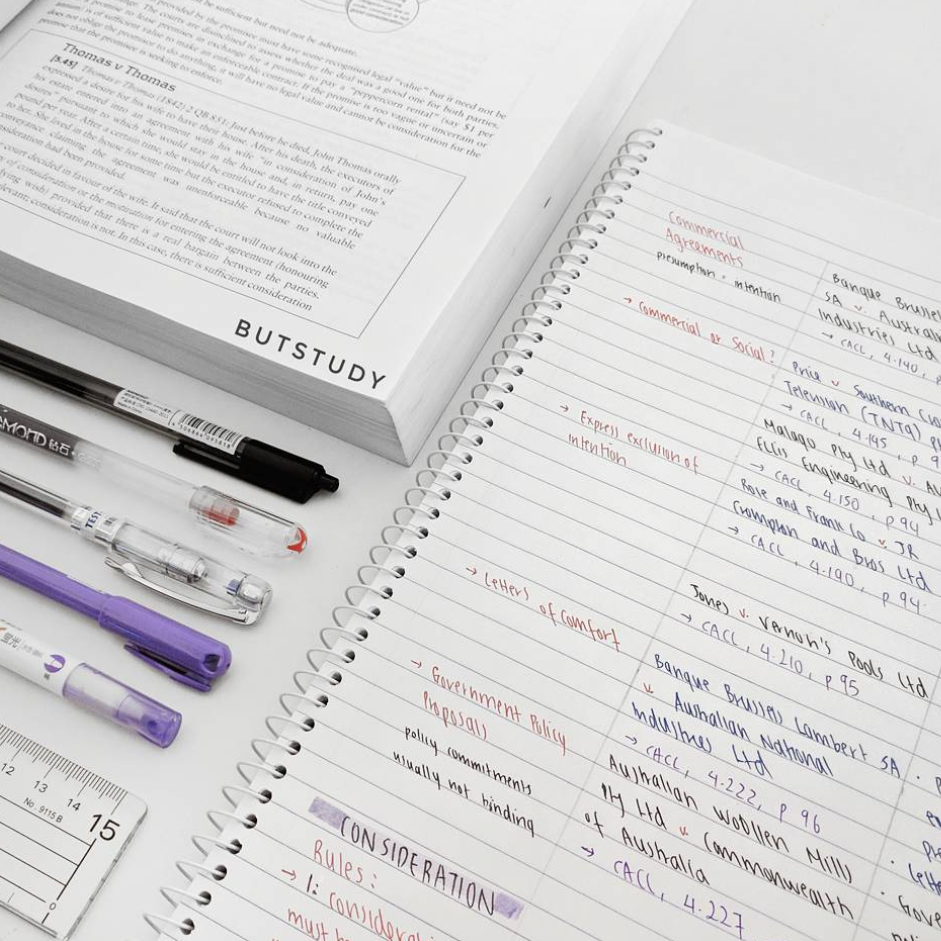 provided by the promisee must have some recognised legal "value" but it need not be
a promise. The courts are disinclined to assess whether the deal was a good one for both parties.
to lease premises in exchange for a promise to pay a "peppercorn rental" (say $1 per
is of sufficient value to make an enforceable contract. If the promise is too vague or uncertain or
does not oblige the promisee to do anything, it will have no legal value and cannot be consideration for the
promise that the promisee is seeking to enforce.
Thomas v Thomas
[5.45] Thomas v Thomas (1842) 2 QB 851: Just before he died, John Thomas orally
expressed a desire for his wife to have their house. After his death, the executors of
his estate entered into an agreement with his wife "in consideration of John's
desires" pursuant to which she could stay in the house and, in return, pay one
pound per year. After a certain time, she would be entitled to have the title conveyed
to her. She lived in the house for some time but the executor refused to complete the
conveyance, claiming the agreement was unenforceable because no valuable
consideration had been provided.
court decided in favour of the wife. It said that the court will not look into the
of consideration or the motivation for entering the agreement (honouring
dying wish) provided that there is a real bargain between the parties.
consideration is not. In this case, there is sufficient consideration
BUTSTUDY
12 13 14 15
No. 9115B
0
Commercial
Agreements
presumption = intention
→ Commercial or Social?
→ Express exclusion of
intention
→ Letters of comfort
→ Government Policy
Proposals
policy commitments
usually not binding
CONSIDERATION
Rules:
→ 1:
must
Banque
SA v.
Industries Ltd
→ CACL, 4.140, p
v Southern
Television (TNTQ)
→ CACL, 4.145, p 9
Malago Pty Ltd v.
Ellis Engineering Pty
→ CACL, 4.150, p 94
Rose and Frank Co v JR
Crompton and Bros Ltd
→ CACL, 4.190, p 94
Jones v. Vernon's Pools Ltd
→ CACL, 4.210, p 95
Banque Brussels Lambert SA
v Australian National
Industries Ltd
→ CACL, 4.222, p 96
Australian Woollen Mills
Pty Ltd v Commonwealth
of Australia
→ CACL, 4.227